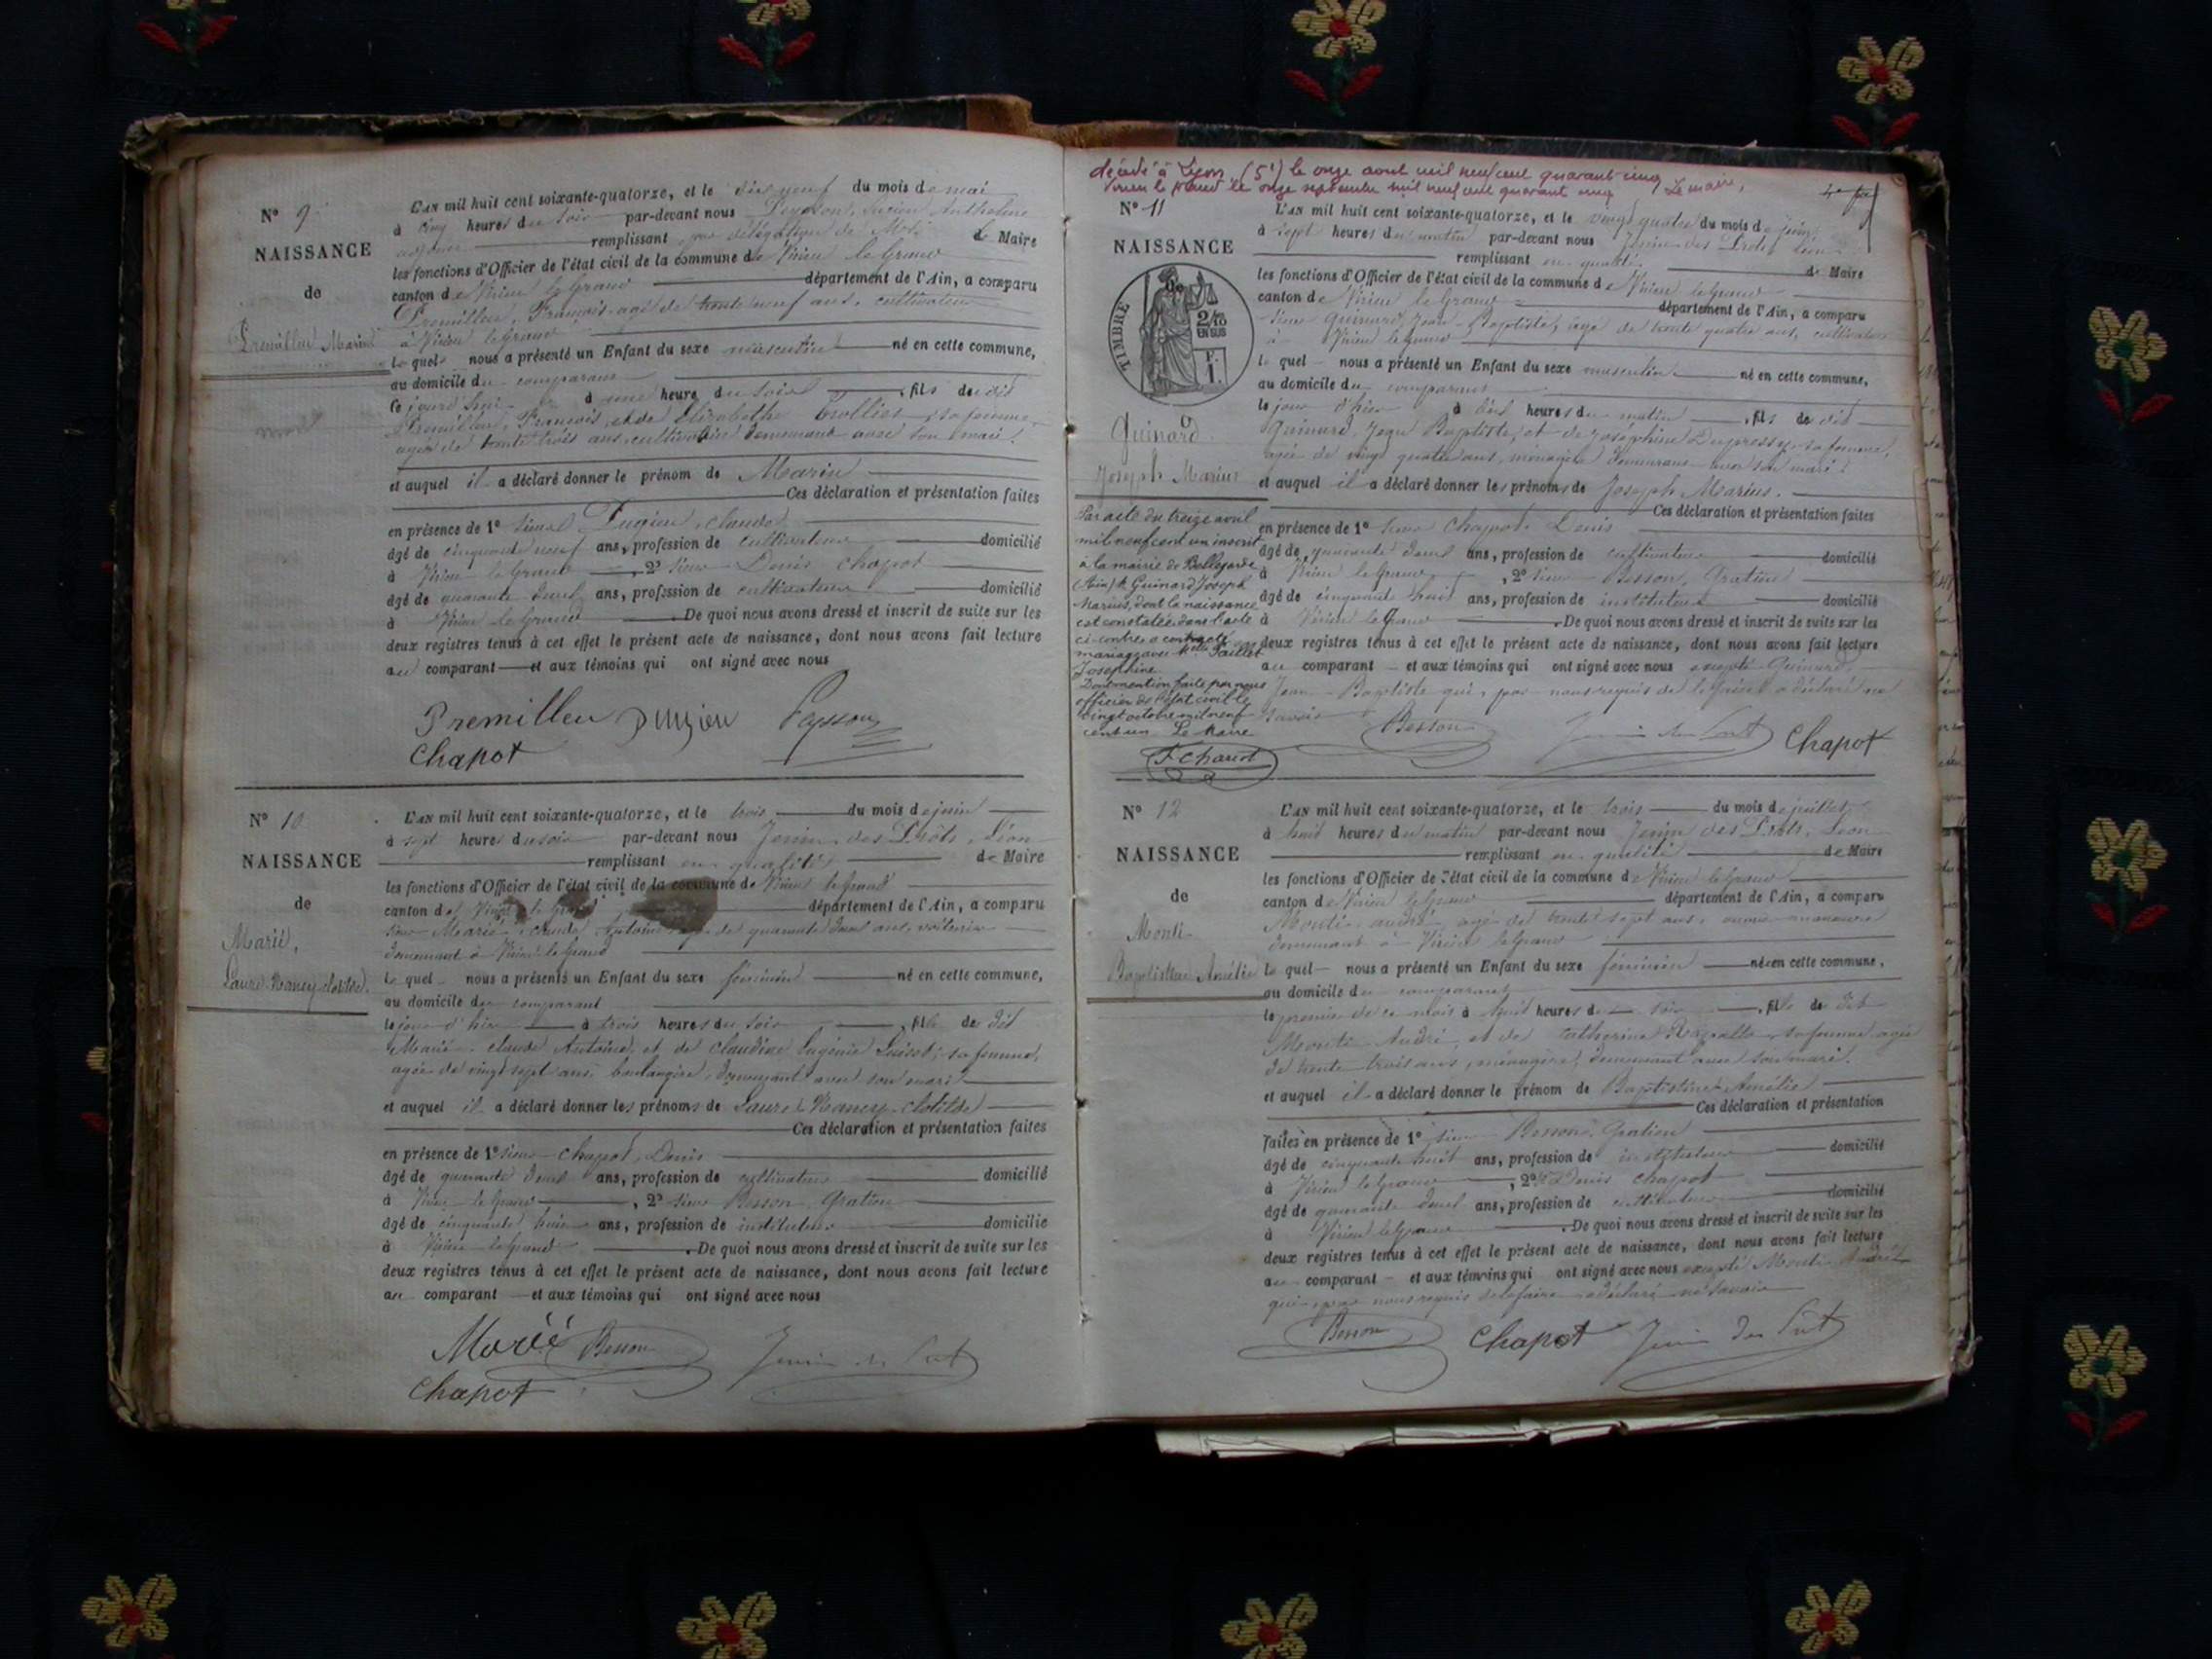 N° 9
NAISSANCE
de
Premillieu Marin
L'AN mil huit cent soixante-quatorze, et le dix neuf du mois de mai
à cinq heures du soir par-devant nous Peysson, Lucien Anthelme
adjoint remplissant par délégation de Mr. le Maire
les fonctions d'Officier de l'état civil de la commune de Virieu le Grand
canton de Virieu le Grand département de l'Ain, a comparu
Premillieu, François, agé de trente neuf ans, cultivateur
à Virieu le Grand
le quel nous a présenté un Enfant du sexe masculin né en cette commune,
au domicile du comparant
ce jourd'hui à une heure du soir, fils du dit
Premillieu, François, et de Elisabethe Trollier, sa femme,
agée de trente trois ans, cultivatrice demeurant avec son mari.
et auquel il a déclaré donner le prénom de Marin
Ces déclaration et présentation faites
en présence de 1° sieur Pugieu, claude
âgé de cinquante neuf ans, profession de cultivateur domicilié
à Virieu le Grand, 2° sieur Denis Chapot
âgé de quarante deux ans, profession de cultivateur domicilié
à Virieu le Grand. De quoi nous avons dressé et inscrit de suite sur les
deux registres tenus à cet effet le présent acte de naissance, dont nous avons fait lecture
au comparant et aux témoins qui ont signé avec nous
Premilleu Pugieu Peysson
Chapot
N° 10
NAISSANCE
de
Marié,
Laure Nancy clotilde
L'AN mil huit cent soixante-quatorze, et le trois du mois de juin
à sept heures du soir par-devant nous Jenin des Prôts, Léon
remplissant en qualité de Maire
les fonctions d'Officier de l'état civil de la commune de Virieu le Grand
canton de Virieu le Grand département de l'Ain, a comparu
sieur Marié, claude Antoine agé de quarante deux ans, voiturier
demeurant à Virieu le Grand
le quel nous a présenté un Enfant du sexe féminin né en cette commune,
au domicile du comparant
le jour d'hier à trois heures du soir, fille du dit
Marié, claude Antoine, et de claudine Eugénie sa femme,
agée de vingt sept ans, boulangère, demeurant avec son mari
et auquel il a déclaré donner les prénoms de Laure Nancy clotilde
Ces déclaration et présentation faites
en présence de 1° sieur Chapot, Denis
âgé de quarante deux ans, profession de cultivateur domicilié
à Virieu le Grand, 2° sieur Besson, Gratien
âgé de cinquante huit ans, profession de instituteur domicilié
à Virieu le Grand. De quoi nous avons dressé et inscrit de suite sur les
deux registres tenus à cet effet le présent acte de naissance, dont nous avons fait lecture
au comparant et aux témoins qui ont signé avec nous
Marié Besson Jenin des Prôts
Chapot
décédé à Lyon (5e) le onze aout mil neuf cent quarante cinq
Virieu le Grand le onze septembre mil neuf cent quarante cinq Le maire,
N° 11
NAISSANCE
TIMBRE
2/10
EN SUS
F.
1.
Guinard
Joseph Marius
Par acte du treize avril
mil neuf cent un inscrit
à la mairie de Bellegarde
(Ain) Mr Guinard Joseph
Marius, dont la naissance
est constatée dans l'acte
ci-contre a contracté
mariage avec Melle Paillet
Josephine
Doit mention faite par nous
officier de l'état civil le
vingt octobre mil neuf
cent un Le Maire
L'AN mil huit cent soixante-quatorze, et le vingt quatre du mois de juin
à sept heures du matin par-devant nous Jenin des Prôts, Léon
remplissant en qualité de Maire
les fonctions d'Officier de l'état civil de la commune de Virieu le Grand
canton de Virieu le Grand département de l'Ain, a comparu
sieur Guinard, Jean-Baptiste, âgé de trente quatre ans, cultivateur
à Virieu le Grand
le quel nous a présenté un Enfant du sexe masculin né en cette commune,
au domicile du comparant
le jour d'hier à dix heures du matin, fils du dit
Guinard, Jean Baptiste, et de Joséphine Dupressy, sa femme,
agée de vingt quatre ans, ménagère demeurant avec son mari.
et auquel il a déclaré donner les prénoms de Joseph Marius.
Ces déclaration et présentation faites
en présence de 1° sieur Chapot, Denis
âgé de quarante deux ans, profession de cultivateur domicilié
à Virieu le Grand, 2° sieur Besson, Gratien
âgé de cinquante huit ans, profession de instituteur domicilié
à Virieu le Grand. De quoi nous avons dressé et inscrit de suite sur les
deux registres tenus à cet effet le présent acte de naissance, dont nous avons fait lecture
au comparant et aux témoins qui ont signé avec nous excepté Guinard,
Jean-Baptiste qui, par nous requis de le faire a déclaré ne
savoir.
Besson Jenin des Prôts Chapot
N° 12
NAISSANCE
de
Monti
Baptistine Amélie
L'AN mil huit cent soixante-quatorze, et le trois du mois de juillet
à huit heures du matin par-devant nous Jenin des Prôts, Léon
remplissant en qualité de Maire
les fonctions d'Officier de l'état civil de la commune de Virieu le Grand
canton de Virieu le Grand département de l'Ain, a comparu
Monti, andré, agé de trente sept ans, ouvrier manœuvre
demeurant à Virieu le Grand
le quel nous a présenté un Enfant du sexe féminin né en cette commune,
au domicile du comparant
le premier de ce mois à huit heures du soir, fille du dit
Monti André, et de Catherine sa femme agée
de trente trois ans, ménagère, demeurant avec son mari.
et auquel il a déclaré donner le prénom de Baptistine Amélie
Ces déclaration et présentation
faites en présence de 1° sieur Besson, Gratien
âgé de cinquante huit ans, profession de instituteur domicilié
à Virieu le Grand, 2° Denis Chapot
âgé de quarante deux ans, profession de cultivateur domicilié
à Virieu le Grand. De quoi nous avons dressé et inscrit de suite sur les
deux registres tenus à cet effet le présent acte de naissance, dont nous avons fait lecture
au comparant et aux témoins qui ont signé avec nous excepté Monti André
qui, par nous requis de le faire a déclaré ne savoir
Besson Chapot Jenin des Prôts